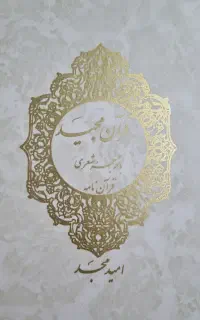 قرآن مجید
ترجمه شعری
قرآن نامه
امید مجد